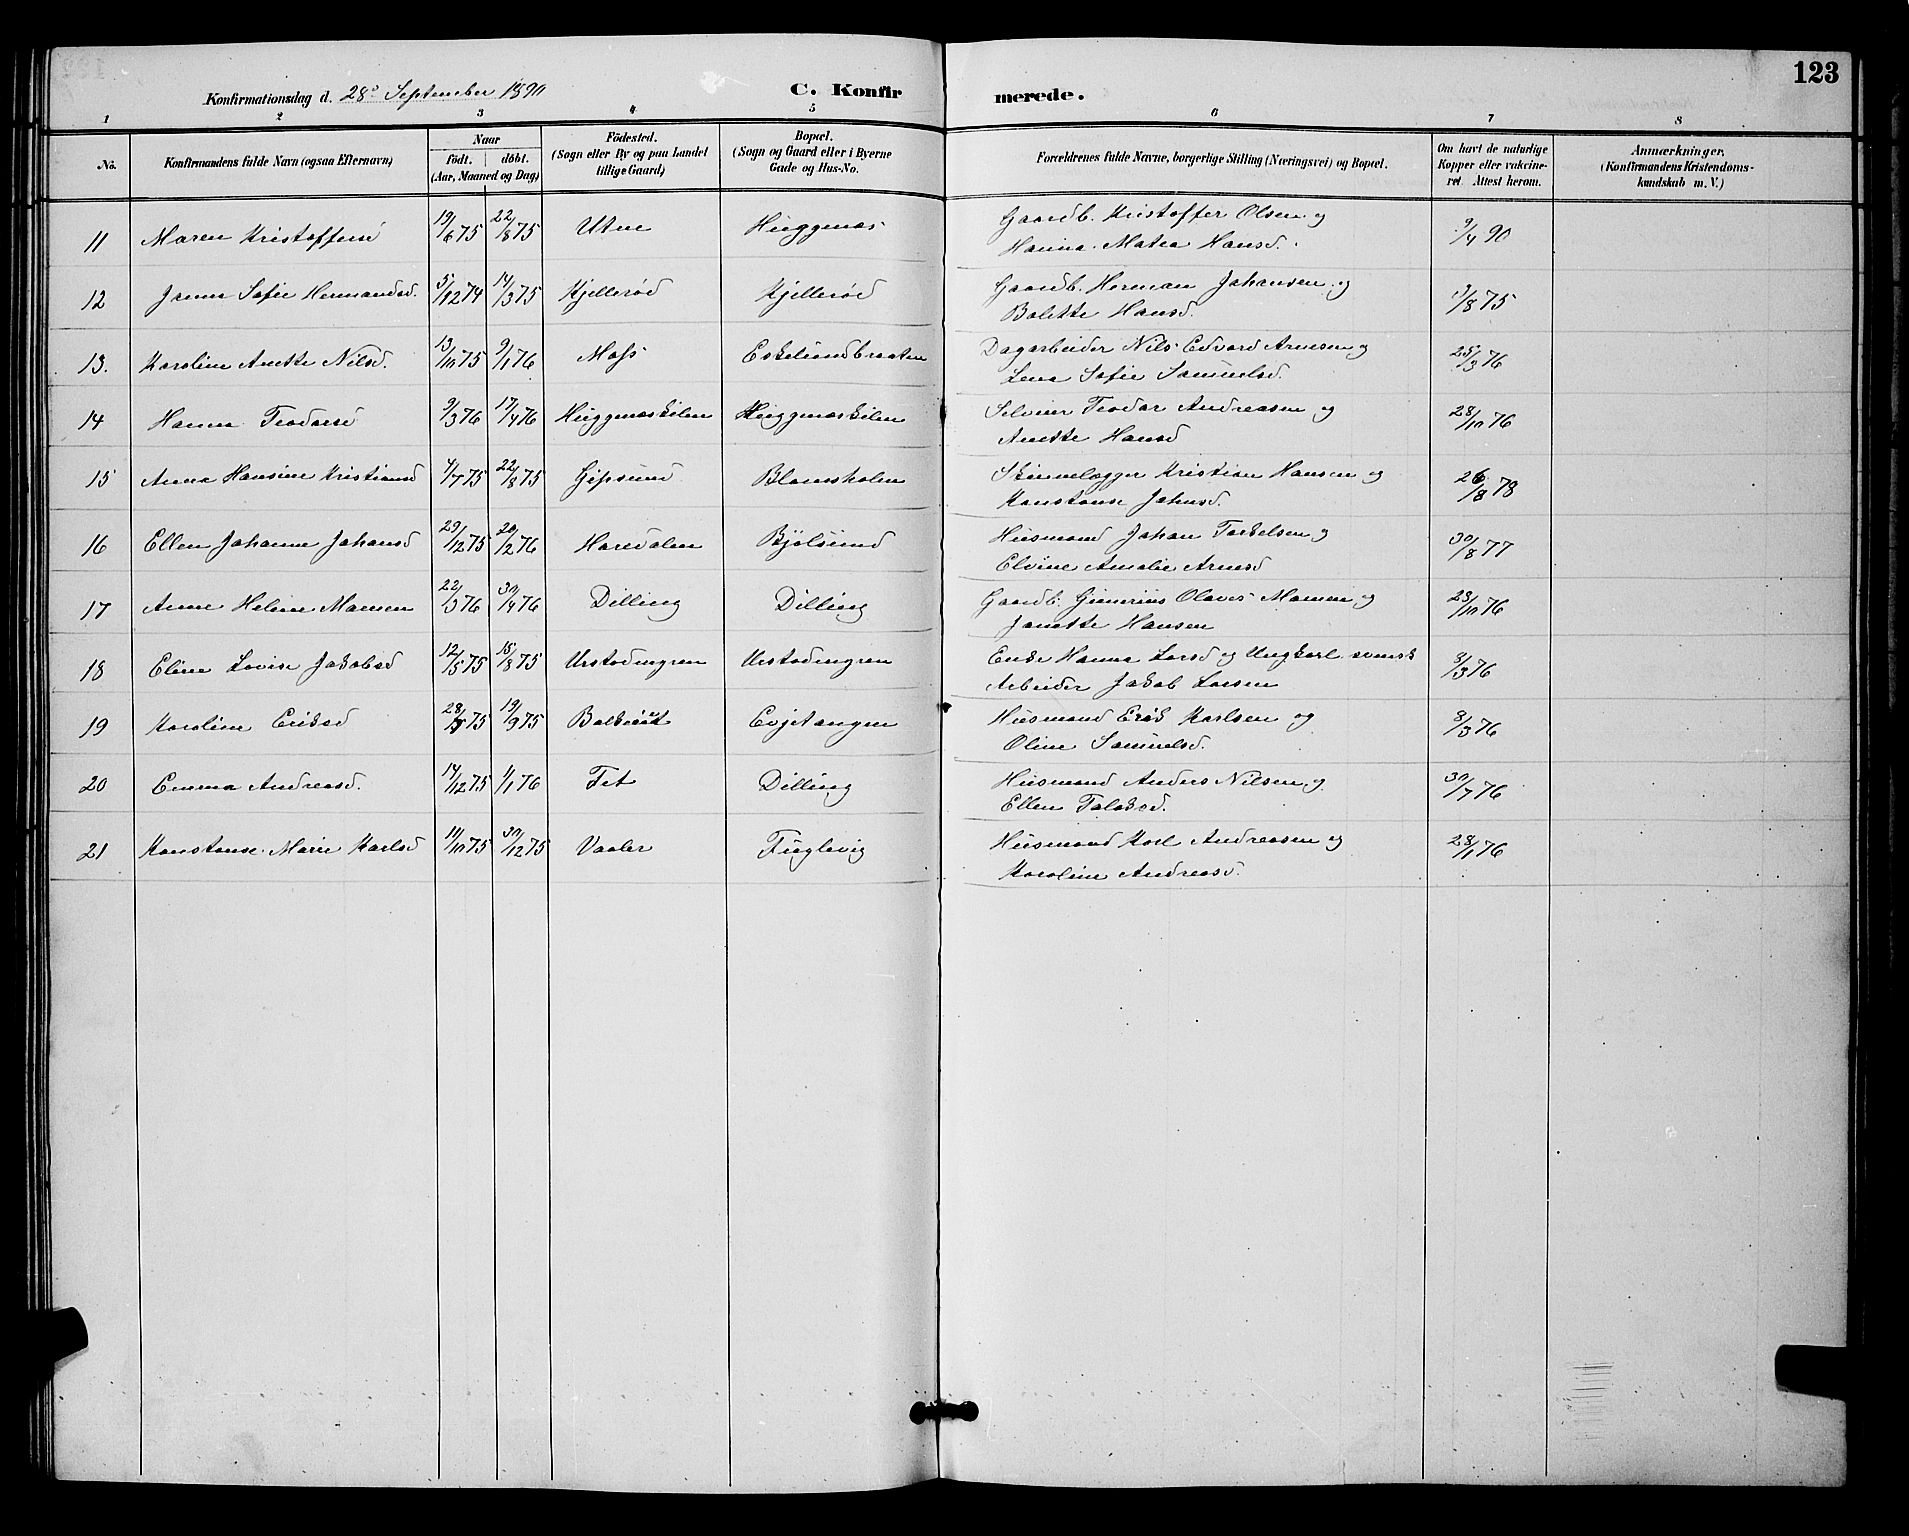 123
Konfirmationsdag d. 28de September 1890 C. Konfirmerede.
1 2 3 4 5 6 7 8
No. Konfirmandens fulde Navn (ogsaa Efternavn) Naar födt. döbt. (Aar, Maaned og Dag) Födested. (Sogn eller By og paa Landet tillige Gaard) Bopæl. (Sogn og Gaard eller i Byerne Gade og Hus-No. Forældrenes fulde Navne, borgerlige Stilling (Næringsvei) og Bopæl. Om havt de naturlige Kopper eller vakcineret. Attest herom. Anmærkninger, (Konfirmandens Kristendomskundskab m. V.)
11 Maren Kristoffersd 19/6 75 22/8 75 Utne Huggenæs Gaardb. Kristoffer Olsen og 9/4 90
Hanna Matea Hansd.
12 Sofie Hermansd. 5/12 74 14/3 75 Kjellerød Kjellerød Gaardb. Herman Johansen og 13/8 75
Bolette Hansd.
13. Karoline Anette Nilsd. 13/10 75 9/1 76 Moss Eskelundbraaten Dagarbeider Nils Edvard Arnesen og 25/3 76
Lena Sofie Samuelsd.
14 Hanna Teodorsd 9/3 76 17/4 76 Huggenæskilen Huggenæskilen Selveier Teodor Andreasen og 28/10 76
Anette Hansd
15 Anna Hansine Kristiansd 4/7 75 22/8 75 Gipsund Blomsholm Skinnelægger Kristian Hansen og 26/8 78
Konstanse Johnsd.
16 Ellen Johanne Johansd 29/12 75 20/2 76 Haredalen Bjölsund Husmand Johan Torkelsen og 30/8 77
Elvine Amalie Arnesd
17 Anne Helene Mamen 22/3 76 30/4 76 Dilling Dilling Gaardb. Gunerius Olaves Mamen og 23/10 76
Janette Hansen
18 Eline Lovise Jakobsd 12/5 75 15/8 75 Urstadengren Urstadengren Enke Hanna Larsd og Ungkarl svensk 3/3 76
Arbeider Jakob Larsen
19 Karoline Eriksd 28/5 75 19/9 75 Evjetangen Husmand Erik Karlsen og 3/3 76
Oline Samuelsd.
20 Emma Andreasd. 14/12 75 1/1 76 Fet Dilling Husmand Anders Nilsen og 30/7 76
Ellen Falaksd.
21 Konstanse Marie Karlsd 11/10 75 30/12 75 Vaaler Fuglevig Husmand Karl Andreasen og 28/1 76
Karoline Andreasd.